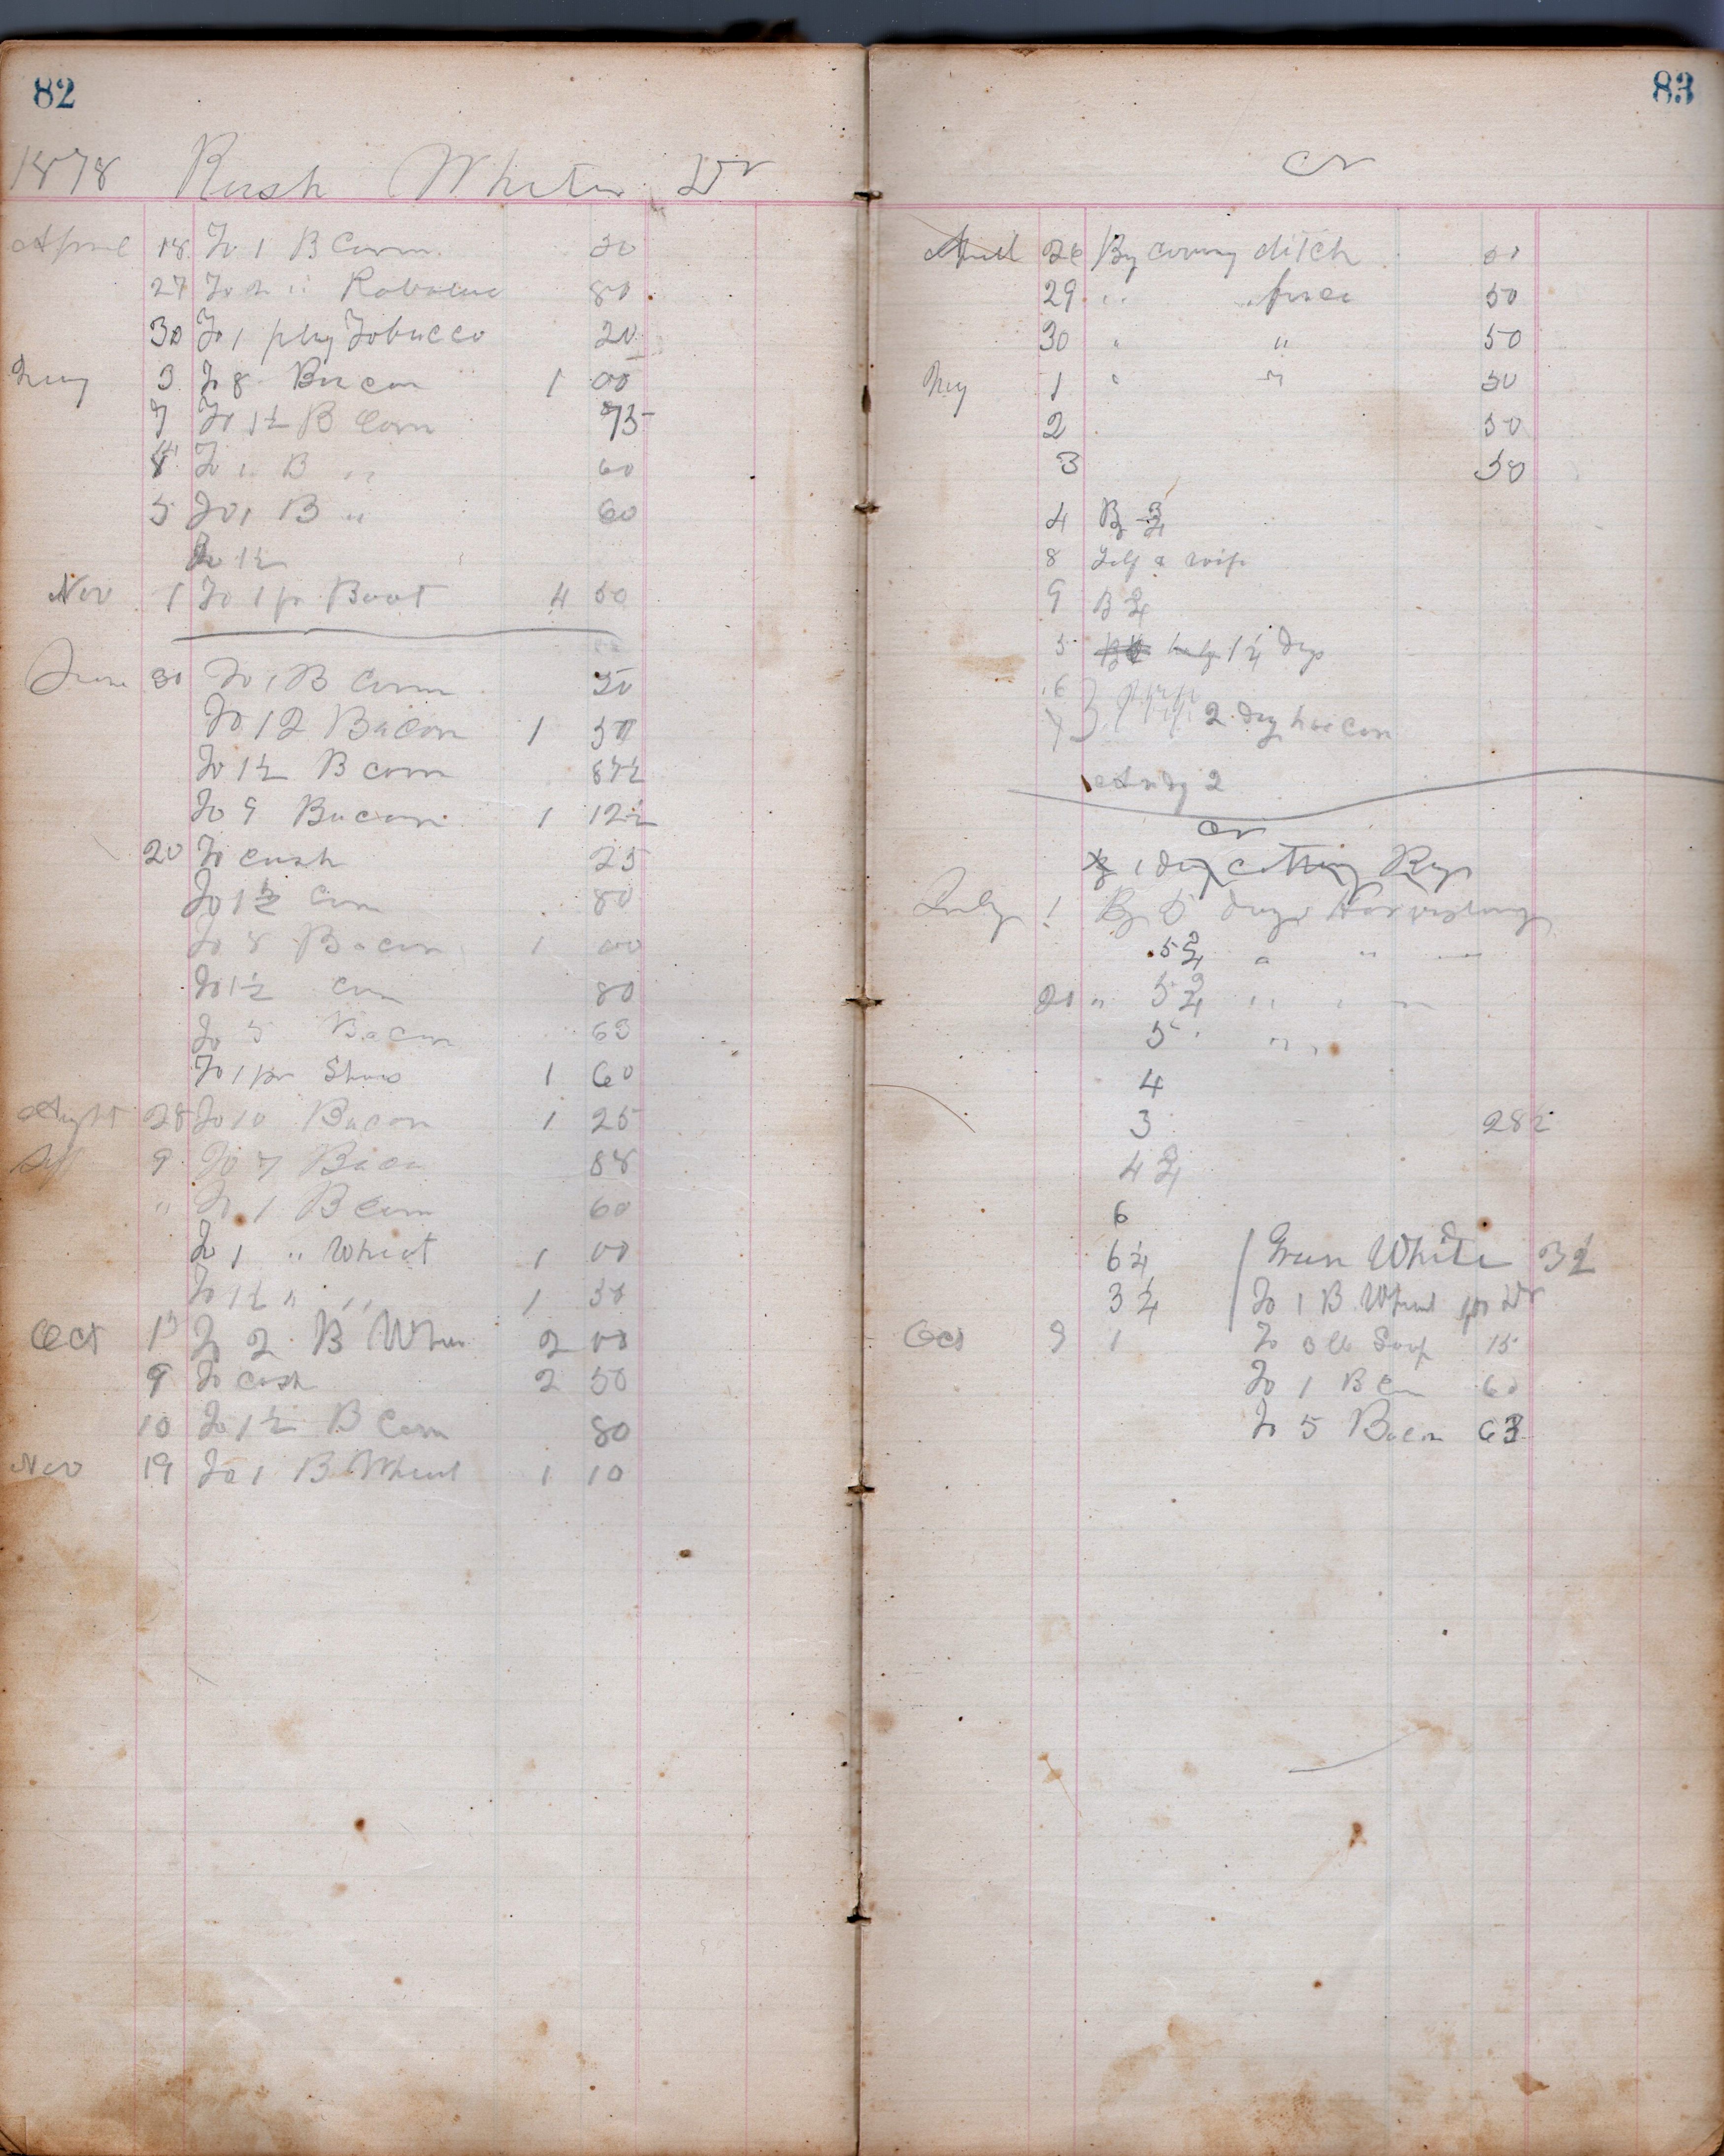 82
1878 Rush White Dr
April 18 To 1 B Corn. 50
27 To 2 " 80
30 To 1 plug Tobacco 20
May 3 To 8 Bacon 1 00
7 To 1½ B Corn 75
8 To 1 B " 60
5 To 1 B " 60
To 1½
Nov 1 To 1 pr Boot 4 50
June 30 To 1 B Corn 50
To 12 Bacon 1 50
To 1½ B corn 87½
To 9 Bacon 1 12½
20 To cash 25
To 1½ Corn 80
To 8 Bacon 1 00
To 1½ Corn 80
To 5 Bacon 63
To 1 pr Shoes 1 60
28 To 10 Bacon 1 25
Sept 9 To 7 Bacon 88
" To 1 B Corn 60
To 1 " Wheat 1 00
To 1½ " " 1 50
Oct To 2 B Whea 2 00
9 To cash 2 50
10 To 1½ B Corn 80
Nov 19 To 1 B Wheat 1 10
83
Cr
April 26 By ditch 50
29 " " fence 50
30 " " 50
May 1 " " 50
2 50
3 50
4 By ¾
8 Self & wife
9 B ¾
5 1¼ days
6
7 2 day
Andy 2
Cr
1 day cutting Rye
July 1 By 5 days Harvesting
5¾ " " "
20 " 5¾ " " "
5 " "
4
3 28½
4¾
6
6¼ White 3½
3¼ To 1 B Wheat Dr
Oct 9 1 To 3 lb Soap 15
To 1 B Corn 60
To 5 Bacon 63